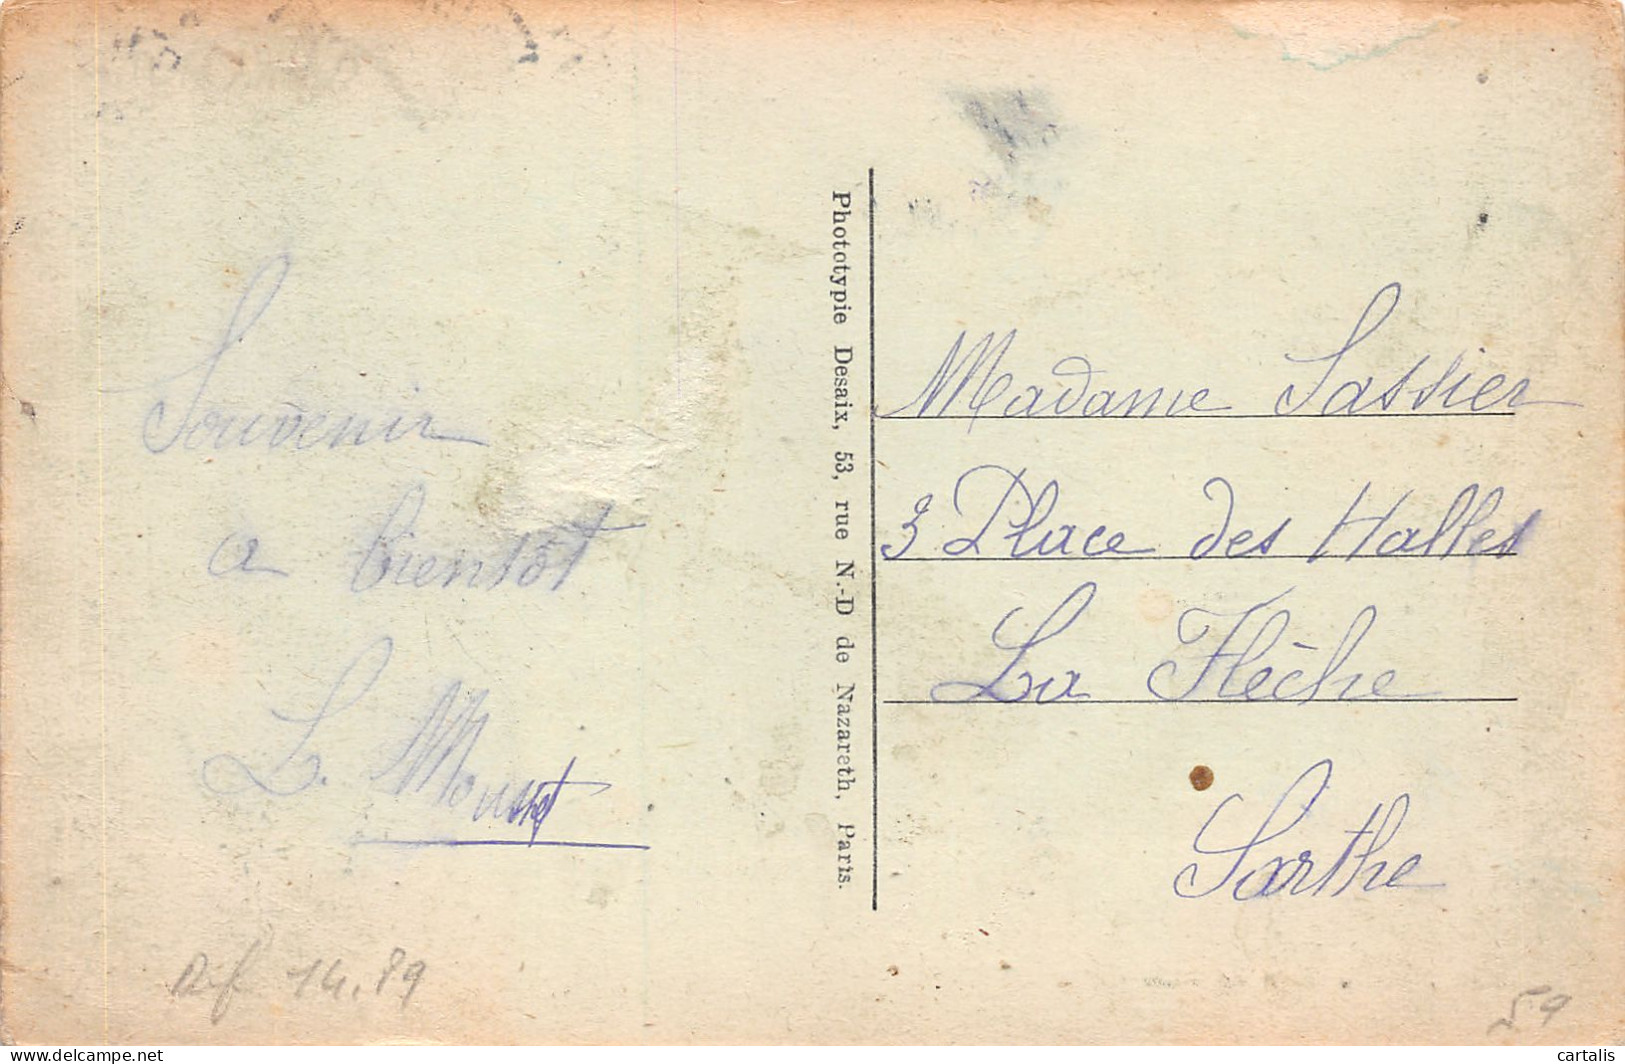 Souvenir
a bientôt
L. Mousset
Phototypie Desaix, 53, rue N.-D de Nazareth, Paris.
Madame Sassier
3 Place des Halles
La Flèche
Sarthe
14.89
59
www.delcampe.net
cartalis